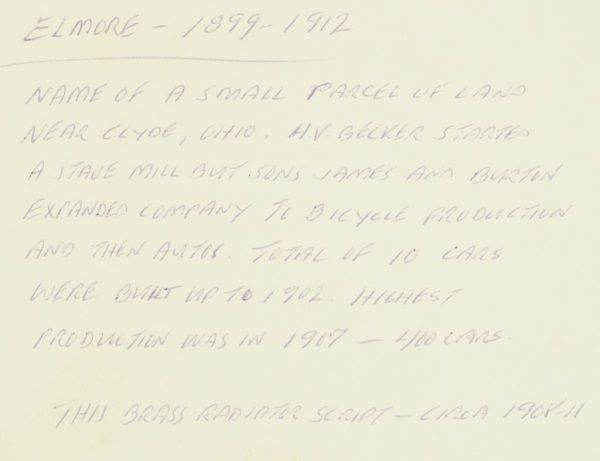 ELMORE - 1899-1912
NAME OF A SMALL PARCEL OF LAND
NEAR CLYDE, OHIO. H.V. BECKER STARTED
A STAVE MILL BUT SONS JAMES AND BURTON
EXPANDED COMPANY TO BICYCLE PRODUCTION
AND THEN AUTOS. TOTAL OF 10 CARS
WERE BUILT UP TO 1902. HIGHEST
PRODUCTION WAS IN 1907 - 400 CARS.
THIS BRASS RADIATOR SCRIPT - CIRCA 1908-11